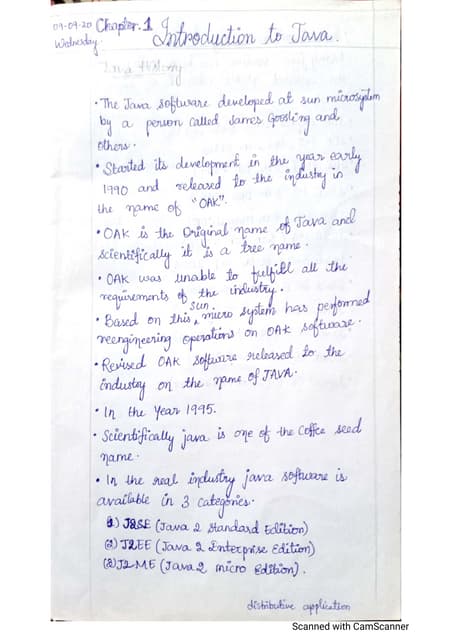 09-09-20 Chapter. 1 Introduction to Java.
Wednesday.
Java History
• The Java software developed at sun microsystem
by a person called James Goosling and
others.
• Started its development in the year early
1990 and released to the industry in
the name of "OAK".
• OAK is the Original name of Java and
scientifically it is a tree name.
• OAK was unable to fulfill all the
requirements of the industry.
• Based on this, sun micro system has performed
reengineering operations on OAK software.
• Revised OAK software released to the
industry on the name of JAVA.
• In the Year 1995.
• Scientifically java is one of the Coffee seed
name.
• In the real industry java software is
available in 3 categories.
1) J2SE (Java 2 Standard Edition)
(2) J2EE (Java 2 Enterprise Edition)
(3) J2ME (Java 2 micro Edition).
distributive application
Scanned with CamScanner